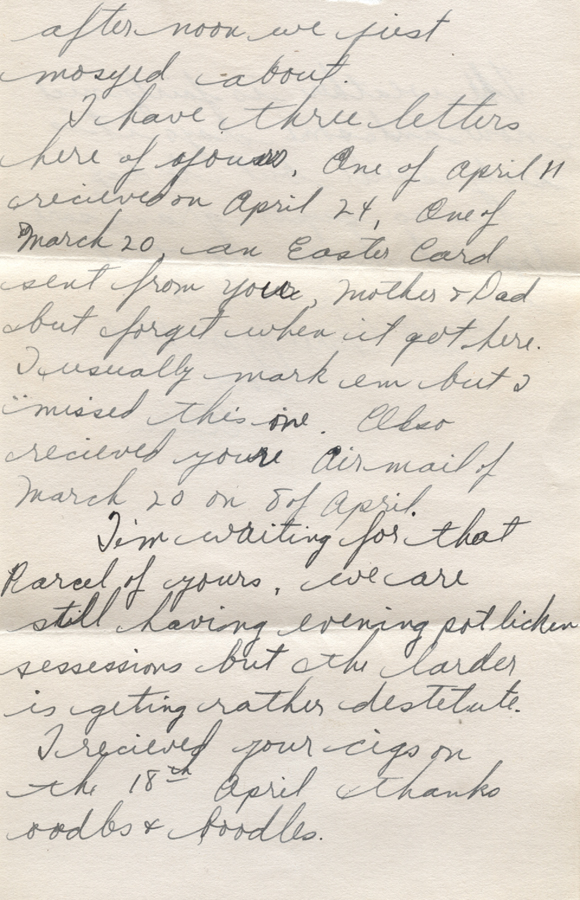 after noon we just
mosyed about.
I have three letters
here of yours, One of April 11
recieved on April 24, One of
March 20, an Easter Card
sent from youre, Mother & Dad
but forget when it got here.
I usually mark em but I
missed this one. Also
recieved youre Airmail of
March 20 on 8 of April.
I'm waiting for that
Parcel of yours, we are
still having evening pot licken
sessessions but the larder
is geting rather destetute.
I recieved your cigs on
the 18th April thanks
oodles & boodles.